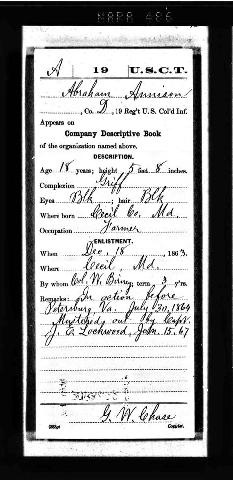 A | 19 | U.S.C.T.
Abraham Annison
, Co. D, 19 Reg't U.S. Col'd Inf.
Appears on
Company Descriptive Book
of the organization named above.
DESCRIPTION.
Age 18 years; height 5 feet 8 inches.
Complexion Griff
Eyes Blk ; hair Blk
Where born Cecil Co. Md.
Occupation Farmer
ENLISTMENT.
When Dec. 18 , 1863.
Where Cecil, Md.
By whom Col. W. Birney; term 3 y'rs.
Remarks: In action before
Petersburg Va. July 30, 1864
Mustered out by Capt.
J. C. Lockwood, Jan. 15. 67
G. W. Chase
Copyist.